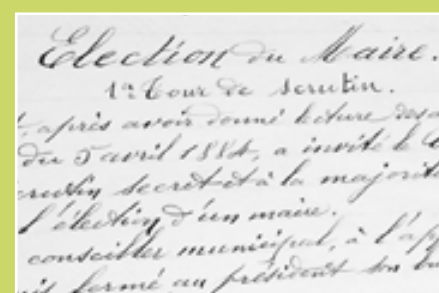 Election du Maire.
1er Tour de scrutin.
, après avoir donné lecture des a
du 5 avril 1884, a invité le
crutin secret et à la majorité
l'élection d'un maire.
conseiller municipal, à l'app
fermé au président son bu